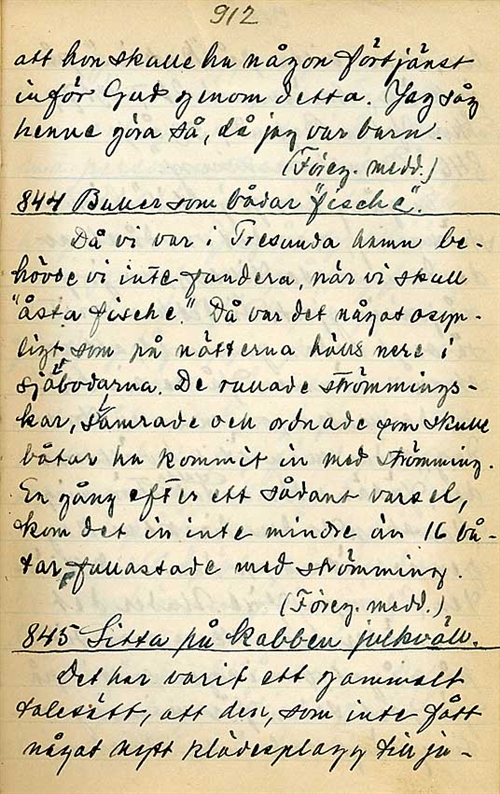 912
att hon skulle ha någon förtjänst
inför Gud genom detta. Jag såg
henne göra så, då jag var barn.
(Föreg. medd.)
844 Buller som bådar "fische".
Då vi var i Tresunda hamn be-
hövde vi inte fundera, när vi skull
"åsta fische". Då var det något osyn-
ligt som på nätterna hölls nere i
sjöbodarna. De rullade strömmings-
kar, slamrade och ordnade som skulle
båtar ha kommit in med strömming.
En gång efter ett sådant varsel,
kom det in inte mindre än 16 bå-
tar, fullastade med strömming.
(Föreg. medd.)
845 Sitta på kabben julkväll.
Det har varit ett gammalt
talesätt, att den, som inte fått
något nytt klädesplagg till ju-